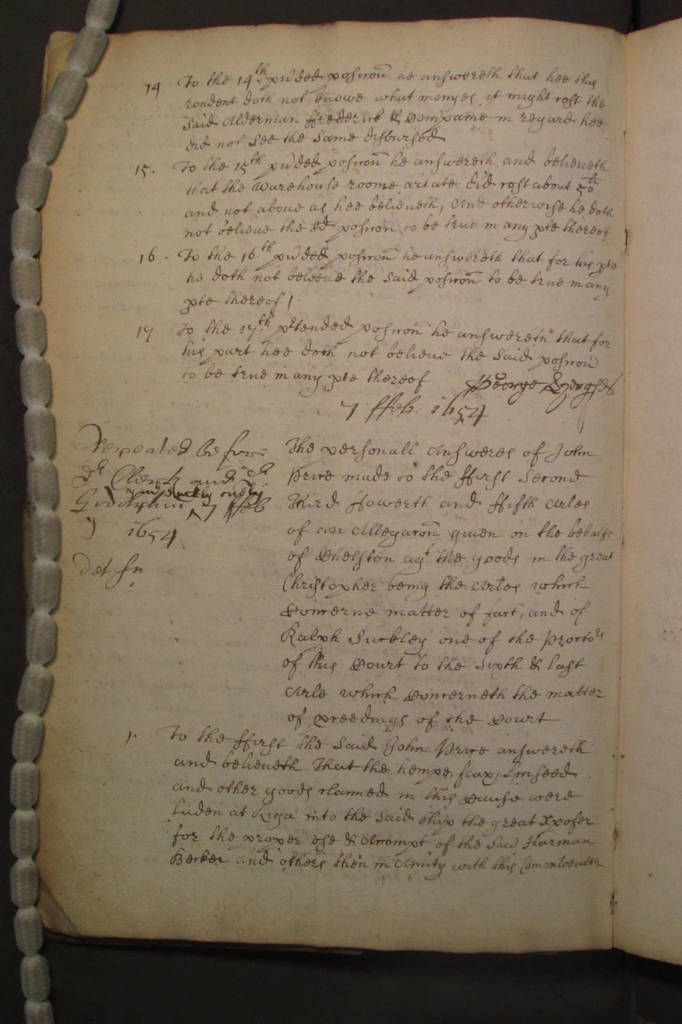 14 To the 14th p̃nded posicon he answereth that hee this
rondent doth not knowe what monyes it might cost the
said Alderman ffrederick & Companie in regard hee
did not see the same disbursed
15. To the 15th p̃nded posicon he answereth and beleeveth
that the warehouse roome did cost about 50li
and not above as hee beleeveth, And otherwise he doth
not beleeve the sd posicon to be true in any pte thereof
16. To the 16th p̃nded posicon he answereth that for his pte
he doth not beleeve the said posicon to be true in any
pte thereof /
17 To the 17th ptended posicon he answereth that for
his part hee doth not beleeve the said posicon
to be true in any pte thereof George
7 ffeb. 1654
Repeated before
dr Clerk and dr
Godolphin 7 ffeb
1654.
The personall Answeres of John
Price made to the ffirst second
third ffowerth and ffifth Arles
of an Allegacon given on the behalfe
of Shelston agt the goods in the great
Christopher being the Arles which
Concerne matter of fact, and of
Ralph Suckley one of the Proctors
of this Court to the Sixth & last
Arle which Concerneth the matter
of pceedings of the Court
1. To the ffirst the said John Price answereth
and beleeveth That the hempe, flax, Linseed
and other goods claimed in this Cause were
Laden at Riga into the said ship the great Xpofer
for the proper use & Accompt of the said Harman
Becker and others then in Amity with this Comonwealth